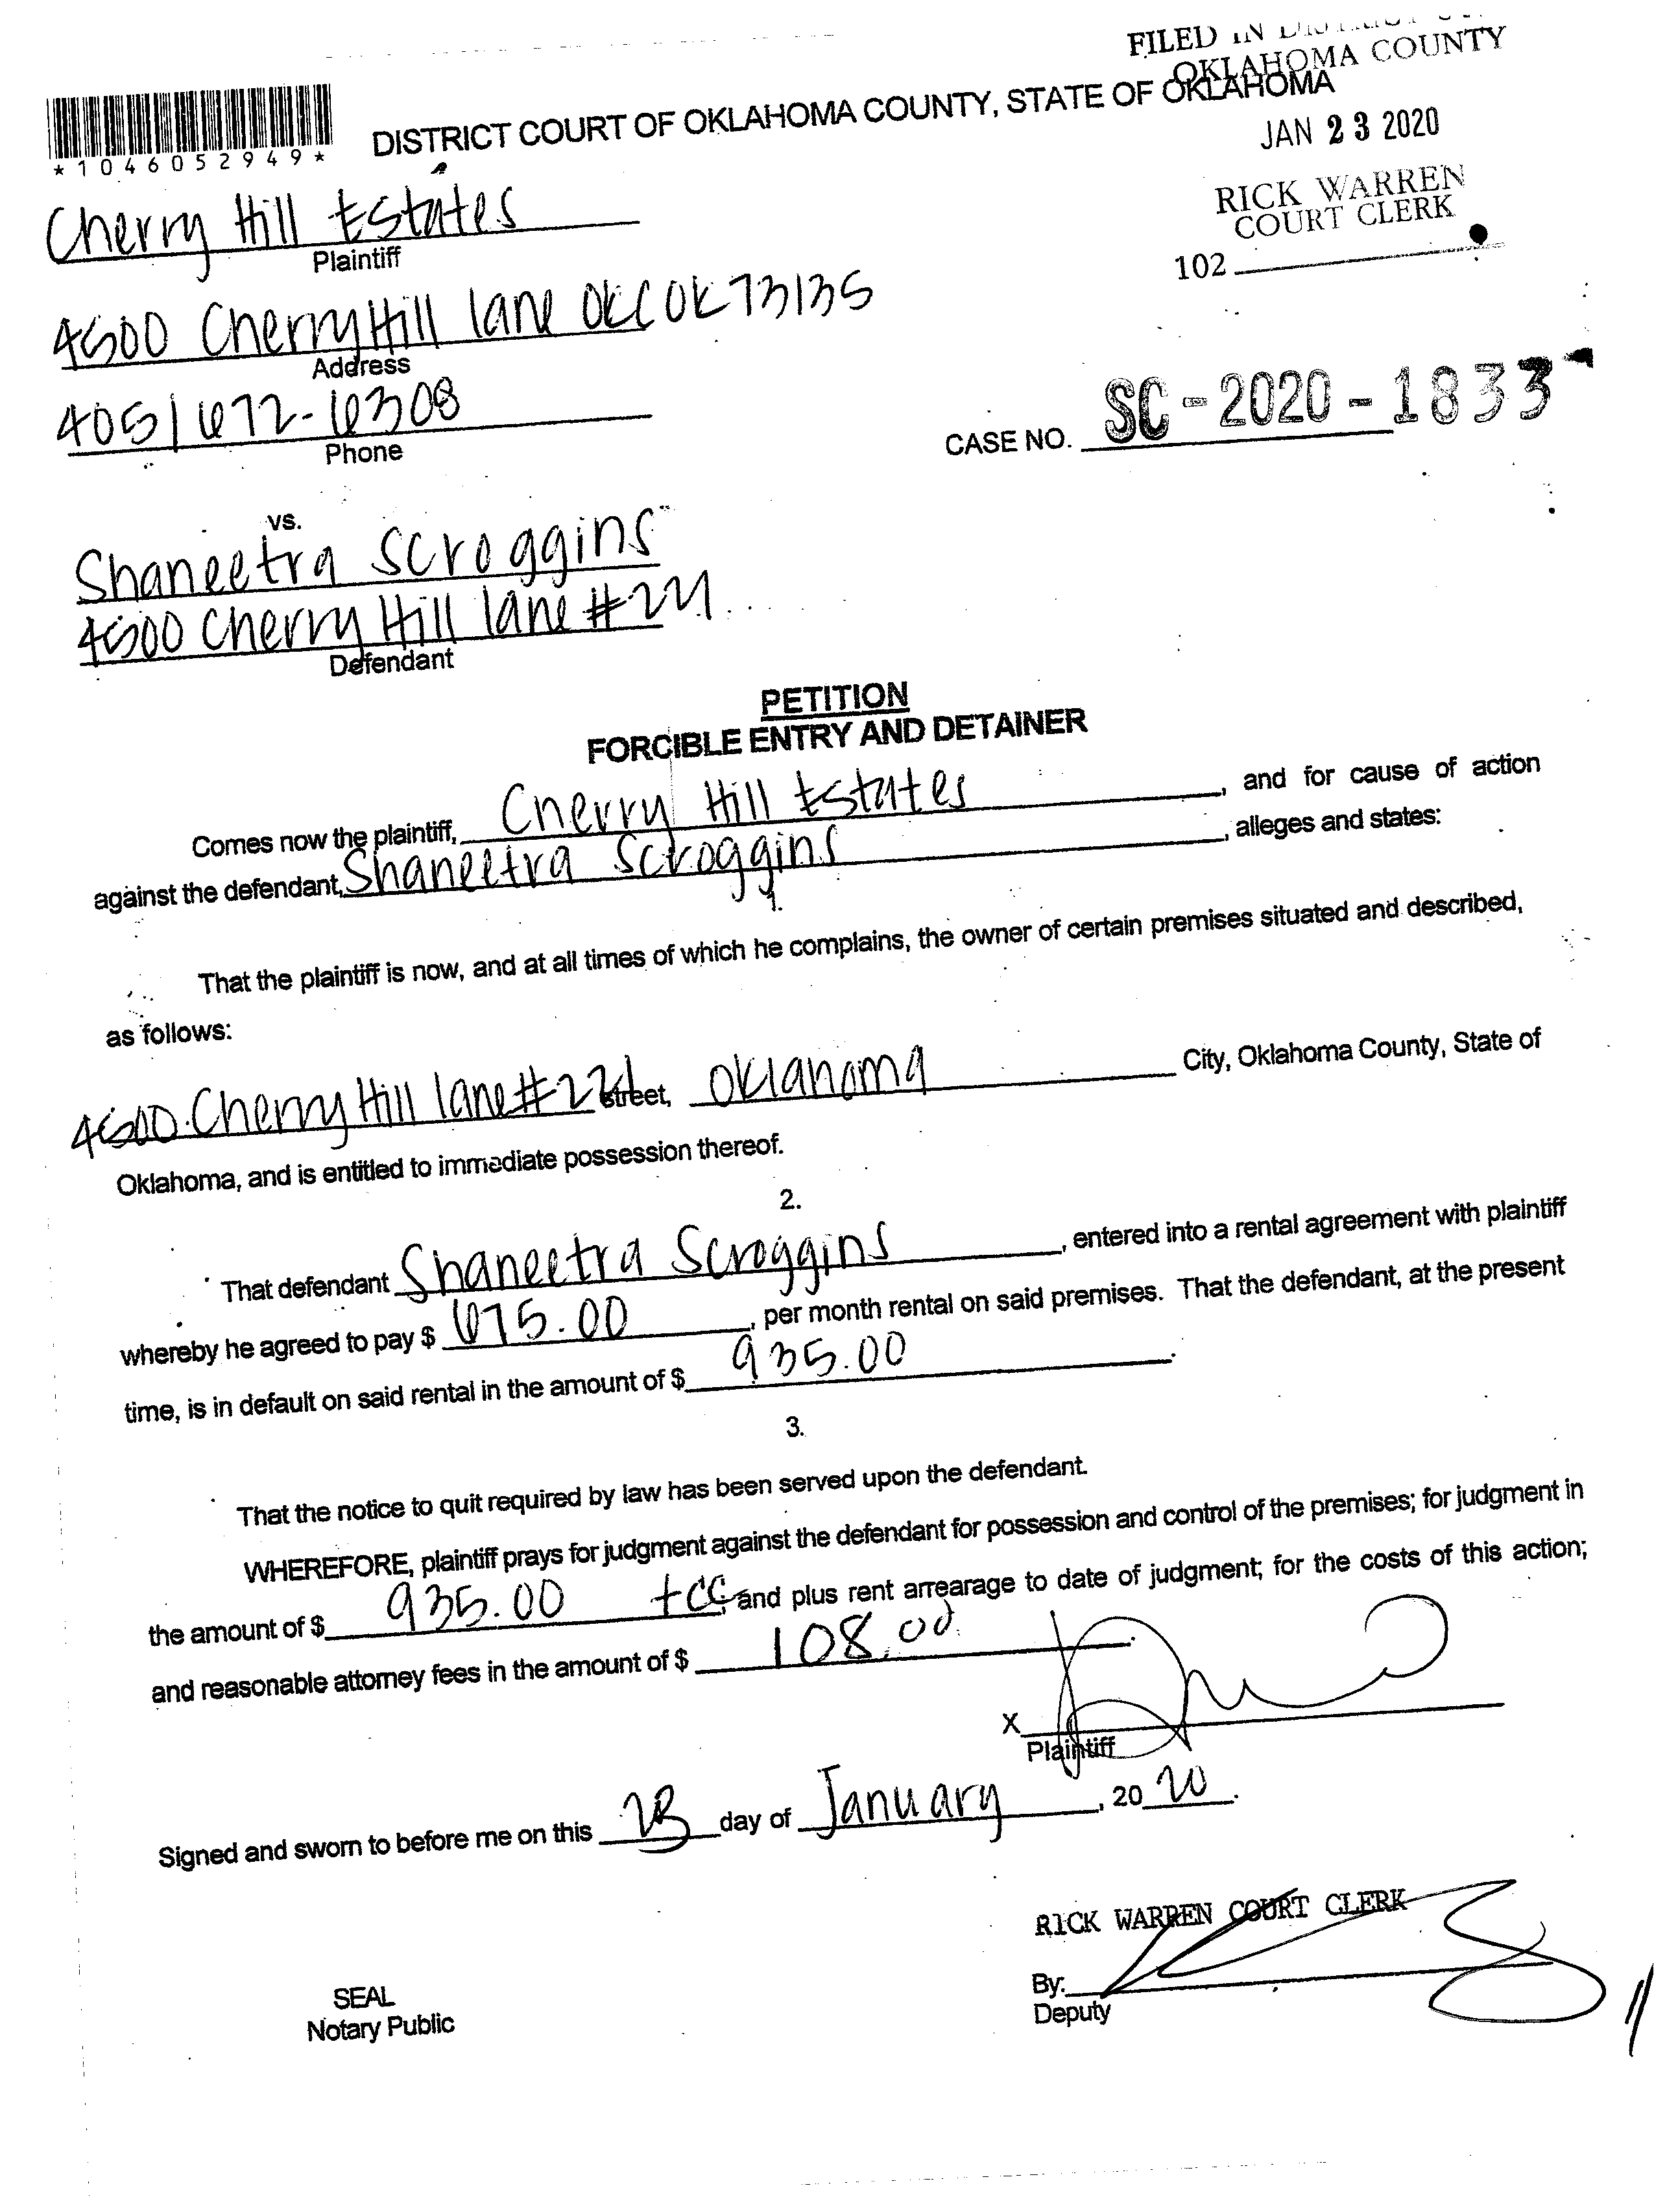 FILED IN DISTRICT
OKLAHOMA COUNTY
DISTRICT COURT OF OKLAHOMA COUNTY, STATE OF OKLAHOMA
JAN 23 2020
*1046052949*
RICK WARREN
COURT CLERK
102
Cherry Hill Estates
Plaintiff
4500 Cherry Hill lane OKC OK 73135
Address
405/672-6308
Phone
CASE NO. SC-2020-1833
vs.
Shaneetra Scroggins
4500 Cherry Hill lane #221
Defendant
PETITION
FORCIBLE ENTRY AND DETAINER
Comes now the plaintiff, Cherry Hill Estates, and for cause of action
against the defendant, Shaneetra Scroggins, alleges and states:
1.
That the plaintiff is now, and at all times of which he complains, the owner of certain premises situated and described,
as follows:
4500 Cherry Hill lane #221 street, Oklahoma City, Oklahoma County, State of
Oklahoma, and is entitled to immediate possession thereof.
2.
That defendant Shaneetra Scroggins, entered into a rental agreement with plaintiff
whereby he agreed to pay $ 675.00, per month rental on said premises. That the defendant, at the present
time, is in default on said rental in the amount of $ 935.00.
3.
That the notice to quit required by law has been served upon the defendant.
WHEREFORE, plaintiff prays for judgment against the defendant for possession and control of the premises; for judgment in
the amount of $ 935.00 +CC, and plus rent arrearage to date of judgment; for the costs of this action;
and reasonable attorney fees in the amount of $ 108.00.
X
Plaintiff
Signed and sworn to before me on this 23 day of January, 2020.
RICK WARREN COURT CLERK
By:
Deputy
SEAL
Notary Public